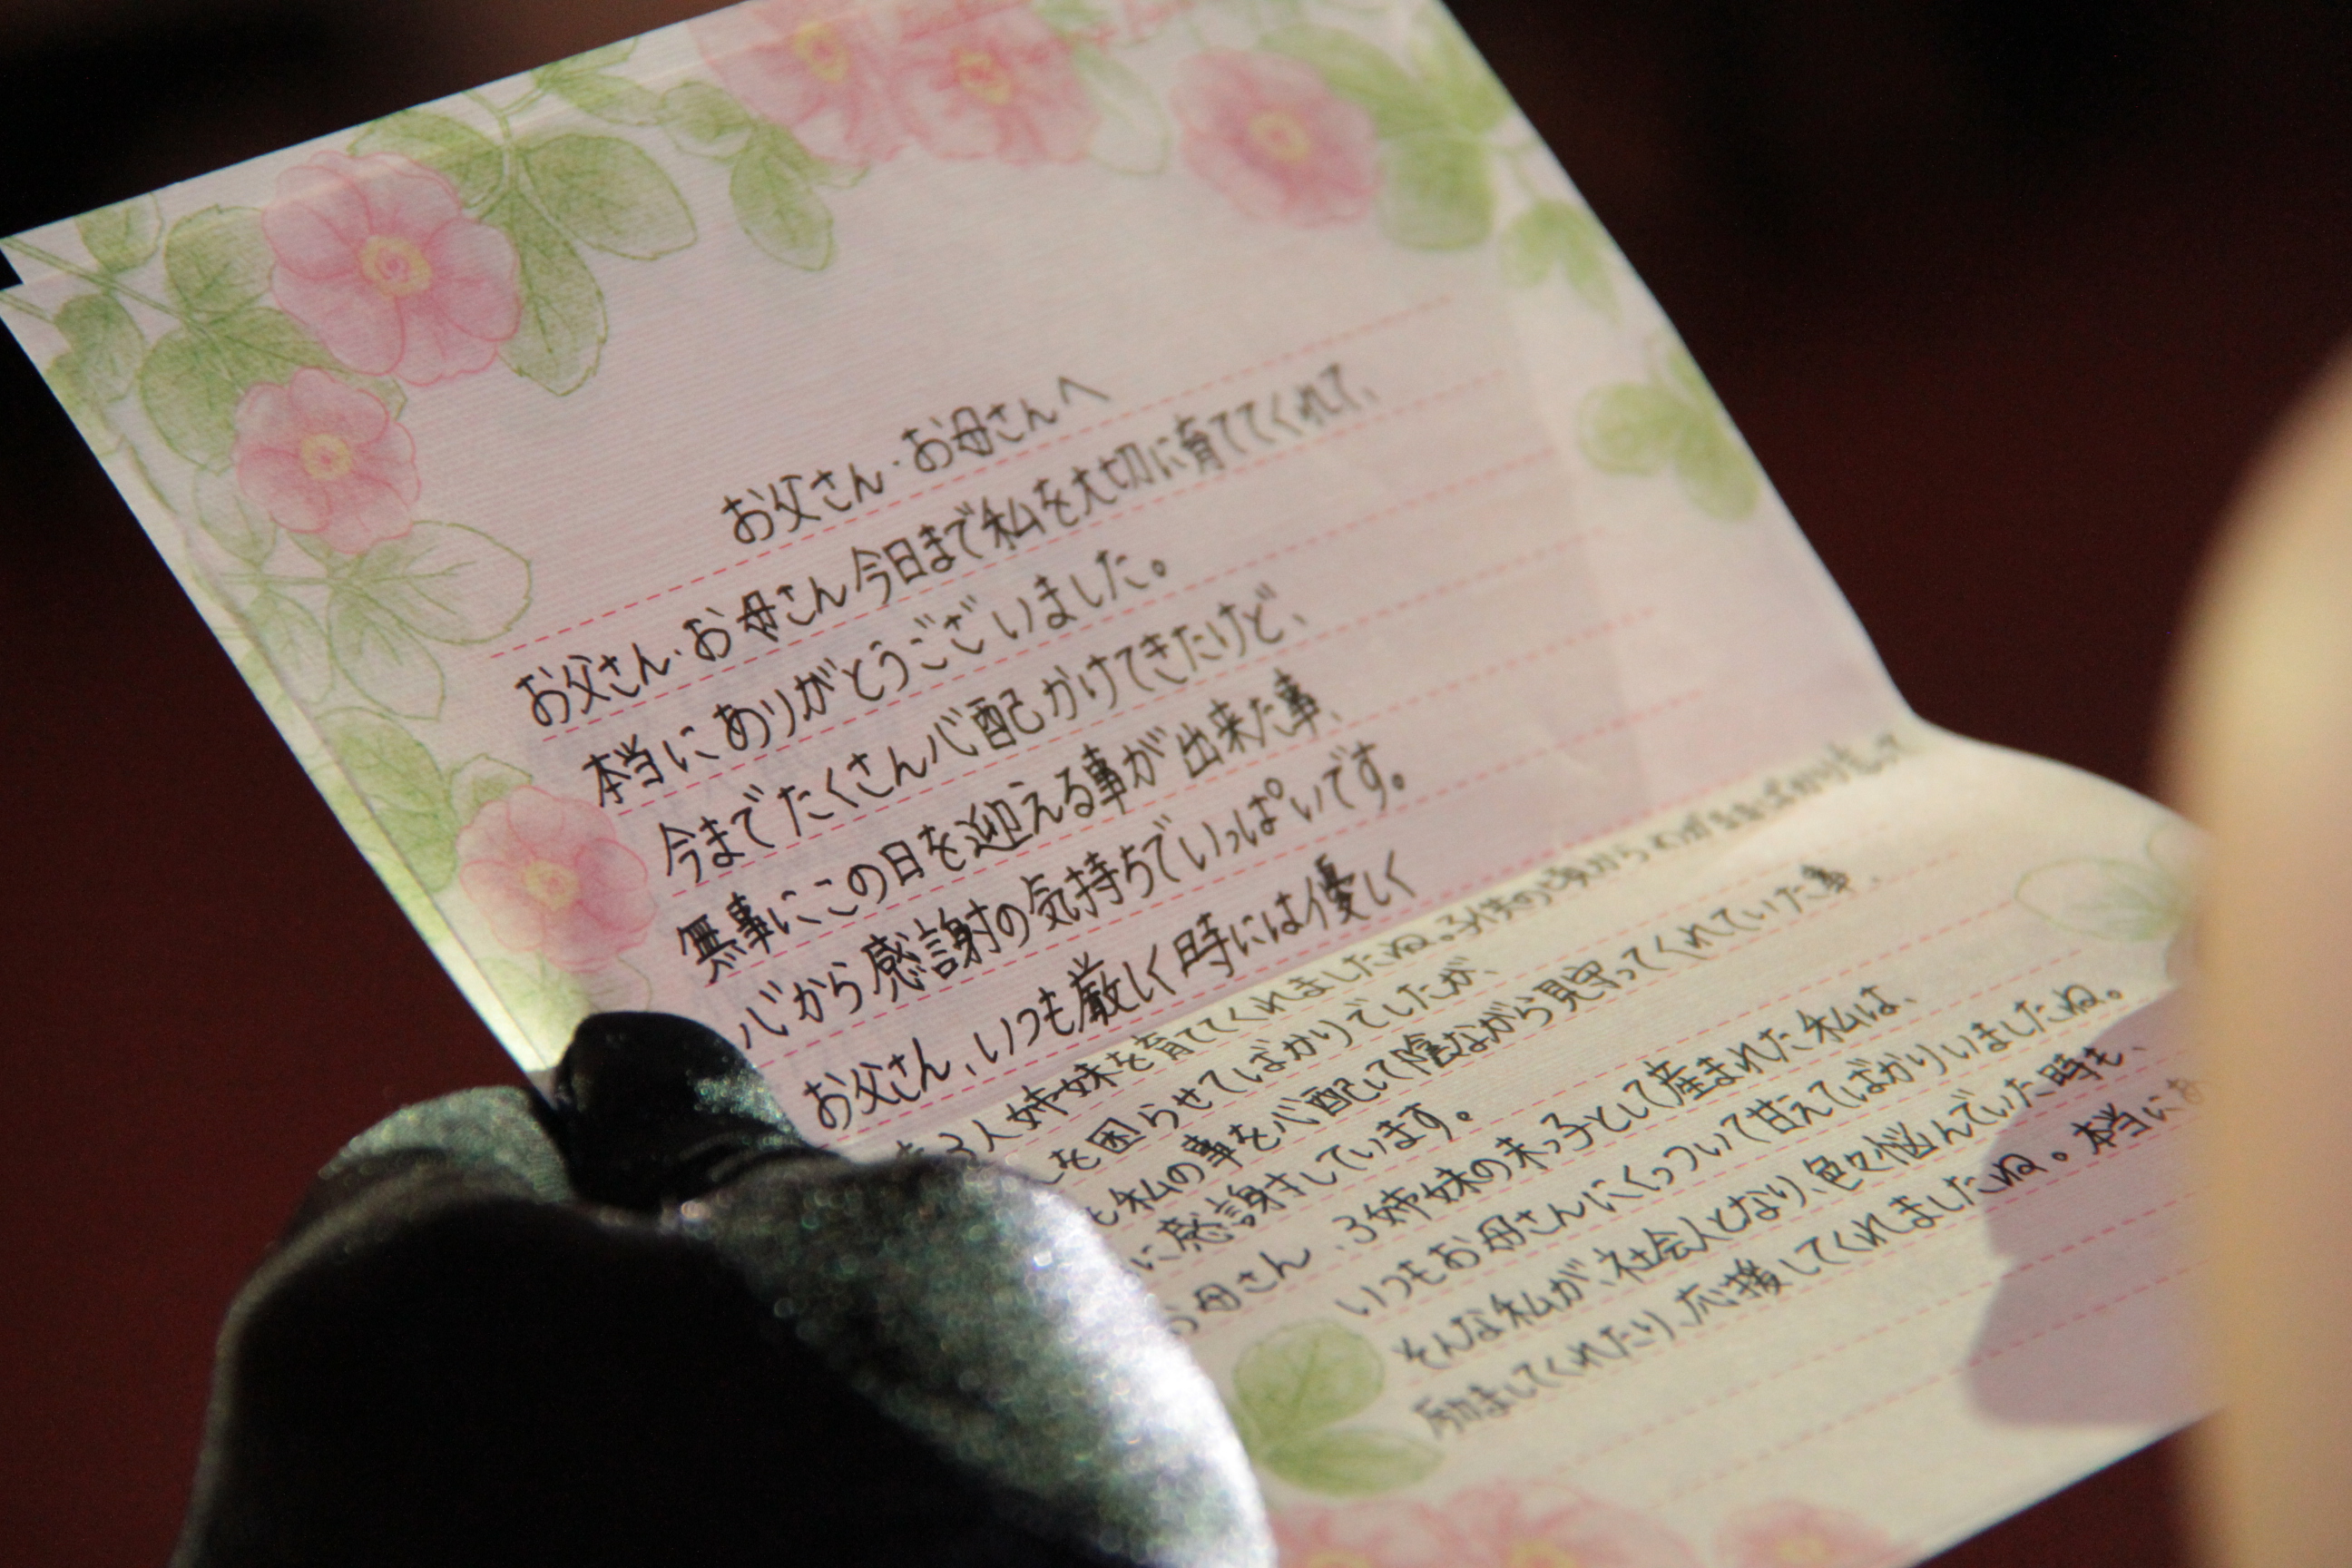 お父さん・お母さんへ
お父さん・お母さん今日まで私を大切に育ててくれて、
本当にありがとうございました。
今までたくさん心配かけてきたけど、
無事にこの日を迎える事が出来た事、
心から感謝の気持ちでいっぱいです。
お父さん、いつも厳しく時には優しく
3人姉妹を育ててくれましたね。子供の頃からわがままばかり言って
を困らせてばかりでしたが、
も私の事を心配して陰ながら見守ってくれていた事、
に感謝しています。
お母さん、3姉妹の末っ子として産まれた私は、
いつもお母さんにくっついて甘えてばかりいましたね。
そんな私が、社会人となり、色々悩んでいた時も、
励ましてくれたり、応援してくれましたね。本当にあ